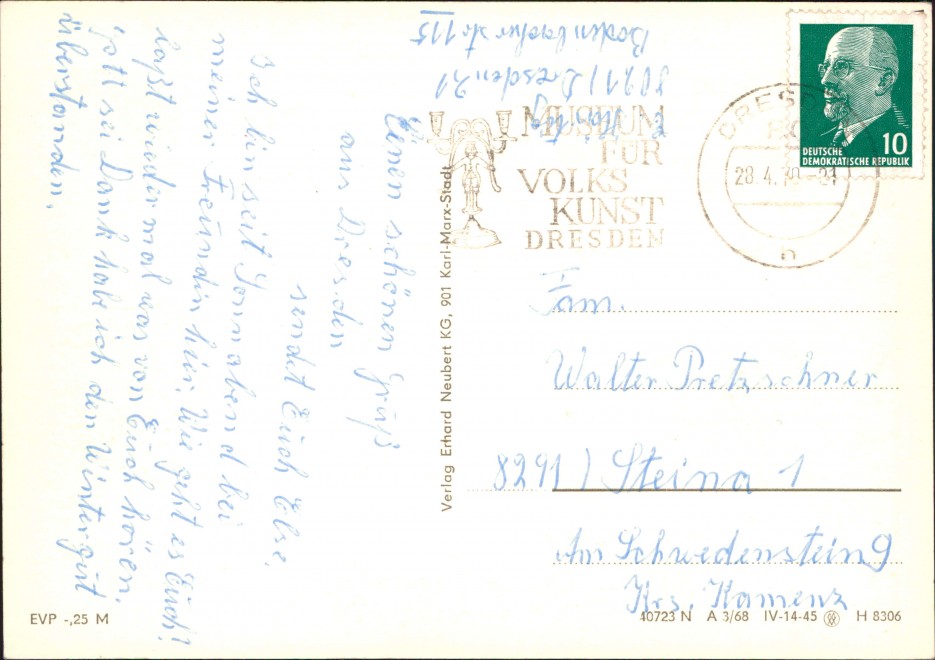 Einen schönen Gruß
aus Dresden
sendet Euch Else.
Ich bin seit Sonnabend bei
meiner Freundin hier. Wie geht es Euch?
laßt wieder mal was von Euch hören.
gott sei Dank habe ich den Winter gut
überstanden.
8021 / Dresden 21
Bodenbacher str 115
MUSEUM
FÜR
VOLKS
KUNST
DRESDEN
DRESDEN
28.4.70-21
h
10
DEUTSCHE
DEMOKRATISCHE REPUBLIK
Fam.
Walter Pretzschner
8291) Steina 1
Am Schwedenstein 9
Krs. Kamenz
Verlag Erhard Neubert KG, 901 Karl-Marx-Stadt
EVP -,25 M
40723 N A 3/68 IV-14-45 H 8306